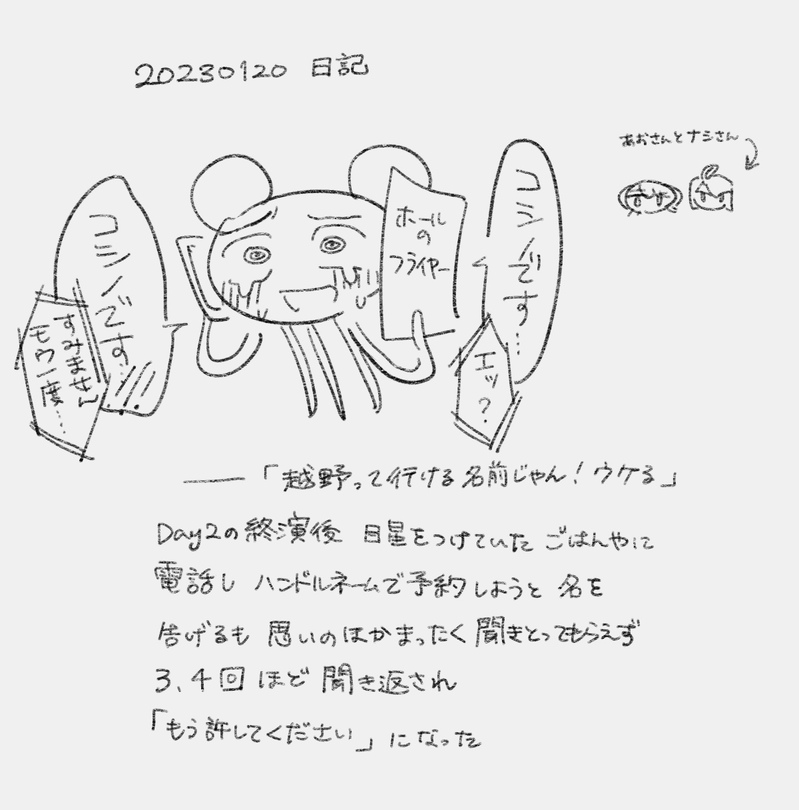 20230120 日記
あおさんとナシさん
コシノです…
エッ?
ホール
の
フライヤー
コシノです…
すみません
モウ一度……
――「越野って行ける名前じゃん!ウケる」
Day2の終演後 目星をつけていた ごはんやに
電話し ハンドルネームで予約しようと 名を
告げるも 思いのほかまったく聞きとってもらえず
3、4回 ほど 聞き返され
「もう許してください」になった